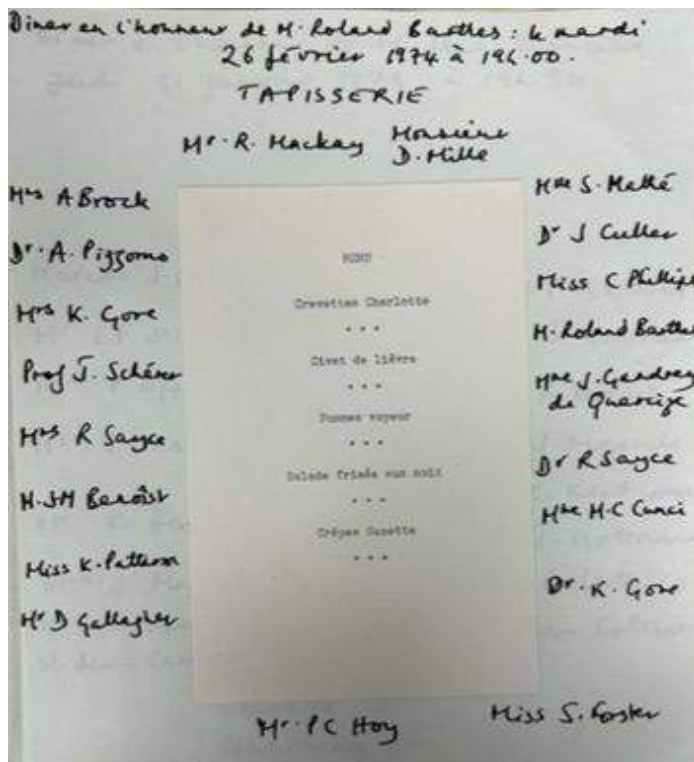 Diner en l'honneur de M. Roland Barthes : le mardi
26 février 1974 à 19h.00.
TAPISSERIE
Mr. R. Mackay
Monsieur
D. Mille
Mrs A Brock
Dr. A. Pizzorno
Mrs K. Gore
Prof J. Schérer
Mrs R Sayce
M. JM Benoîst
Miss K. Patterson
Mr D Gallagher
MENU
Crevettes Charlotte
* * *
Civet de lièvre
* * *
Pommes vapeur
* * *
Salade frisée aux noix
* * *
Crêpes Suzette
* * *
Mme S. Mathé
Dr J Culler
Miss C Phillips
M. Roland Barthes
Mme J. Gaudrey
de Quercize
Dr R Sayce
Mme M-C Canci
Dr. K. Gore
Mr. P C Hoy
Miss S. Forster